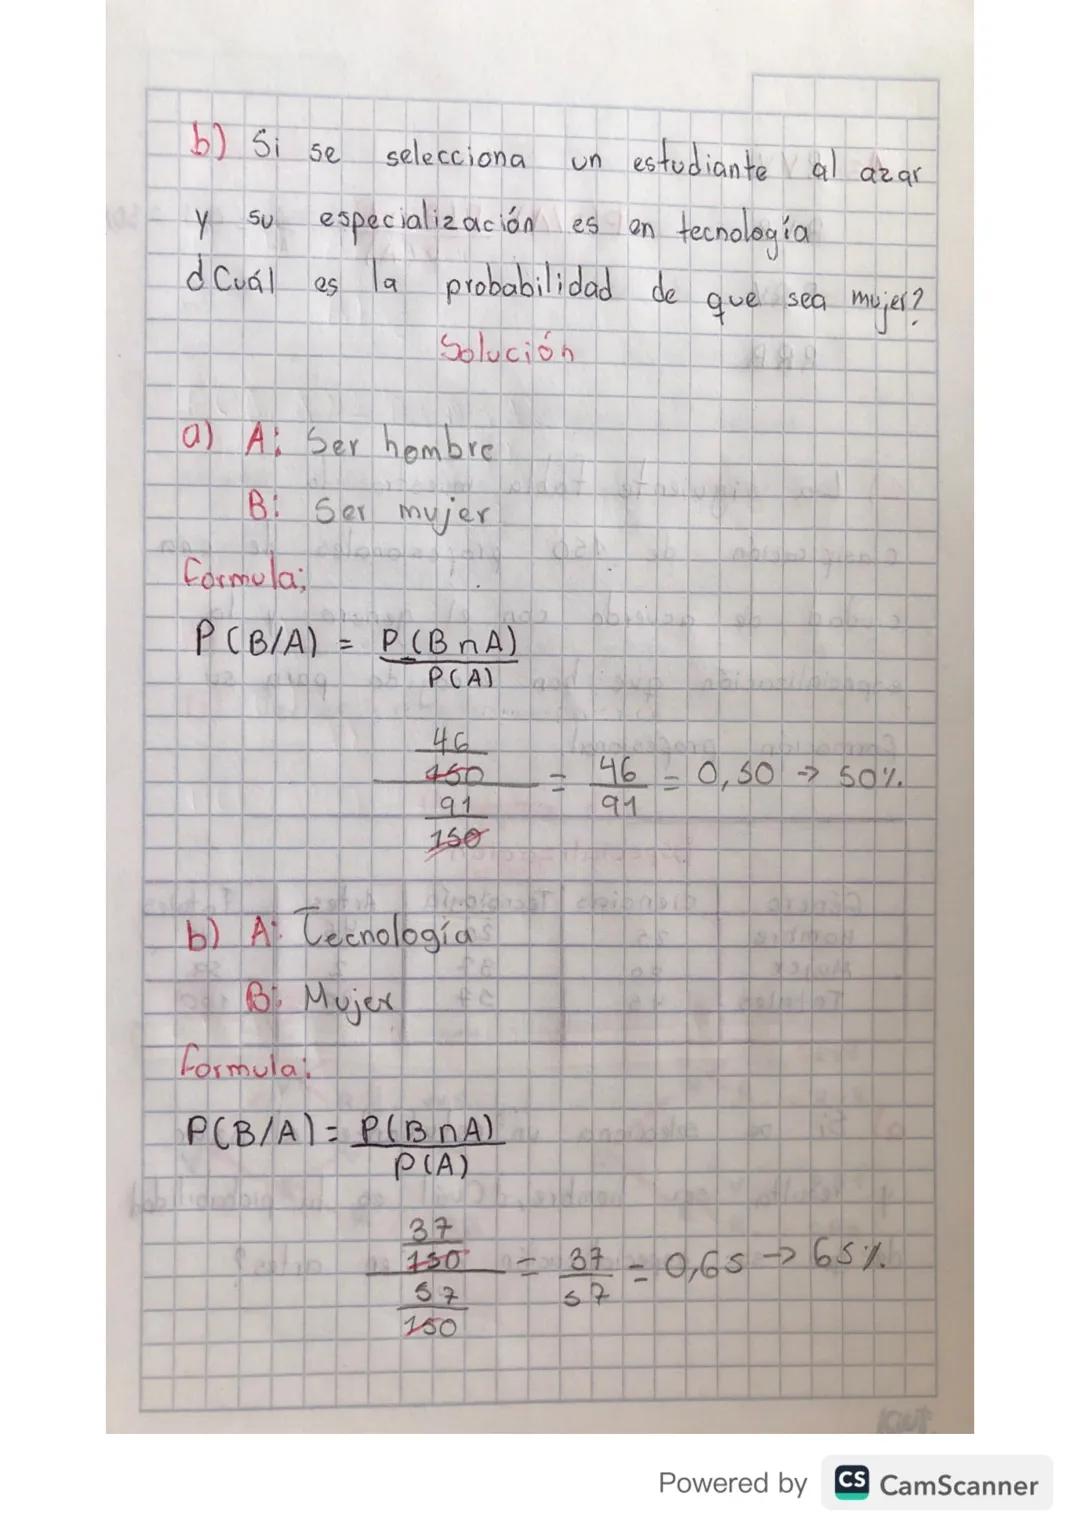 b) Si se selecciona un estudiante al azar
y su especialización es en tecnología
¿Cuál es la probabilidad de que sea mujer?
Solución
a) A: Ser hombre
B: Ser mujer
Formula:
P(B/A) = P(B∩A)
P(A)
46
150
91
150
= 46/91 = 0,50 → 50%
b) A: Tecnología
B: Mujer
Formula:
P(B/A) = P(B∩A)
P(A)
37
150
57
150
= 37/57 = 0,65 → 65%
Powered by CS CamScanner